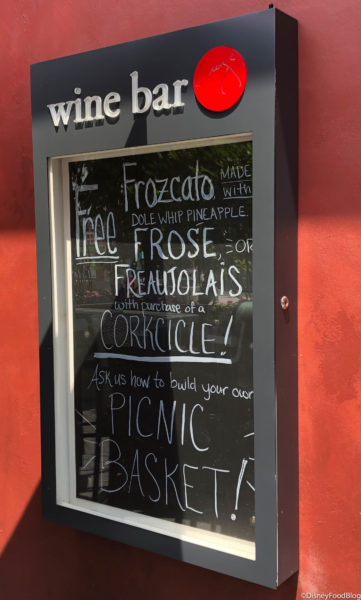 wine bar
Free
Frozcato MADE
with
DOLE WHIP PINEAPPLE.
FROSÉ, OR
FREAUJOLAIS
with purchase of a
CORKCICLE!
Ask us how to build your own
PICNIC
BASKET!
©DisneyFoodBlog